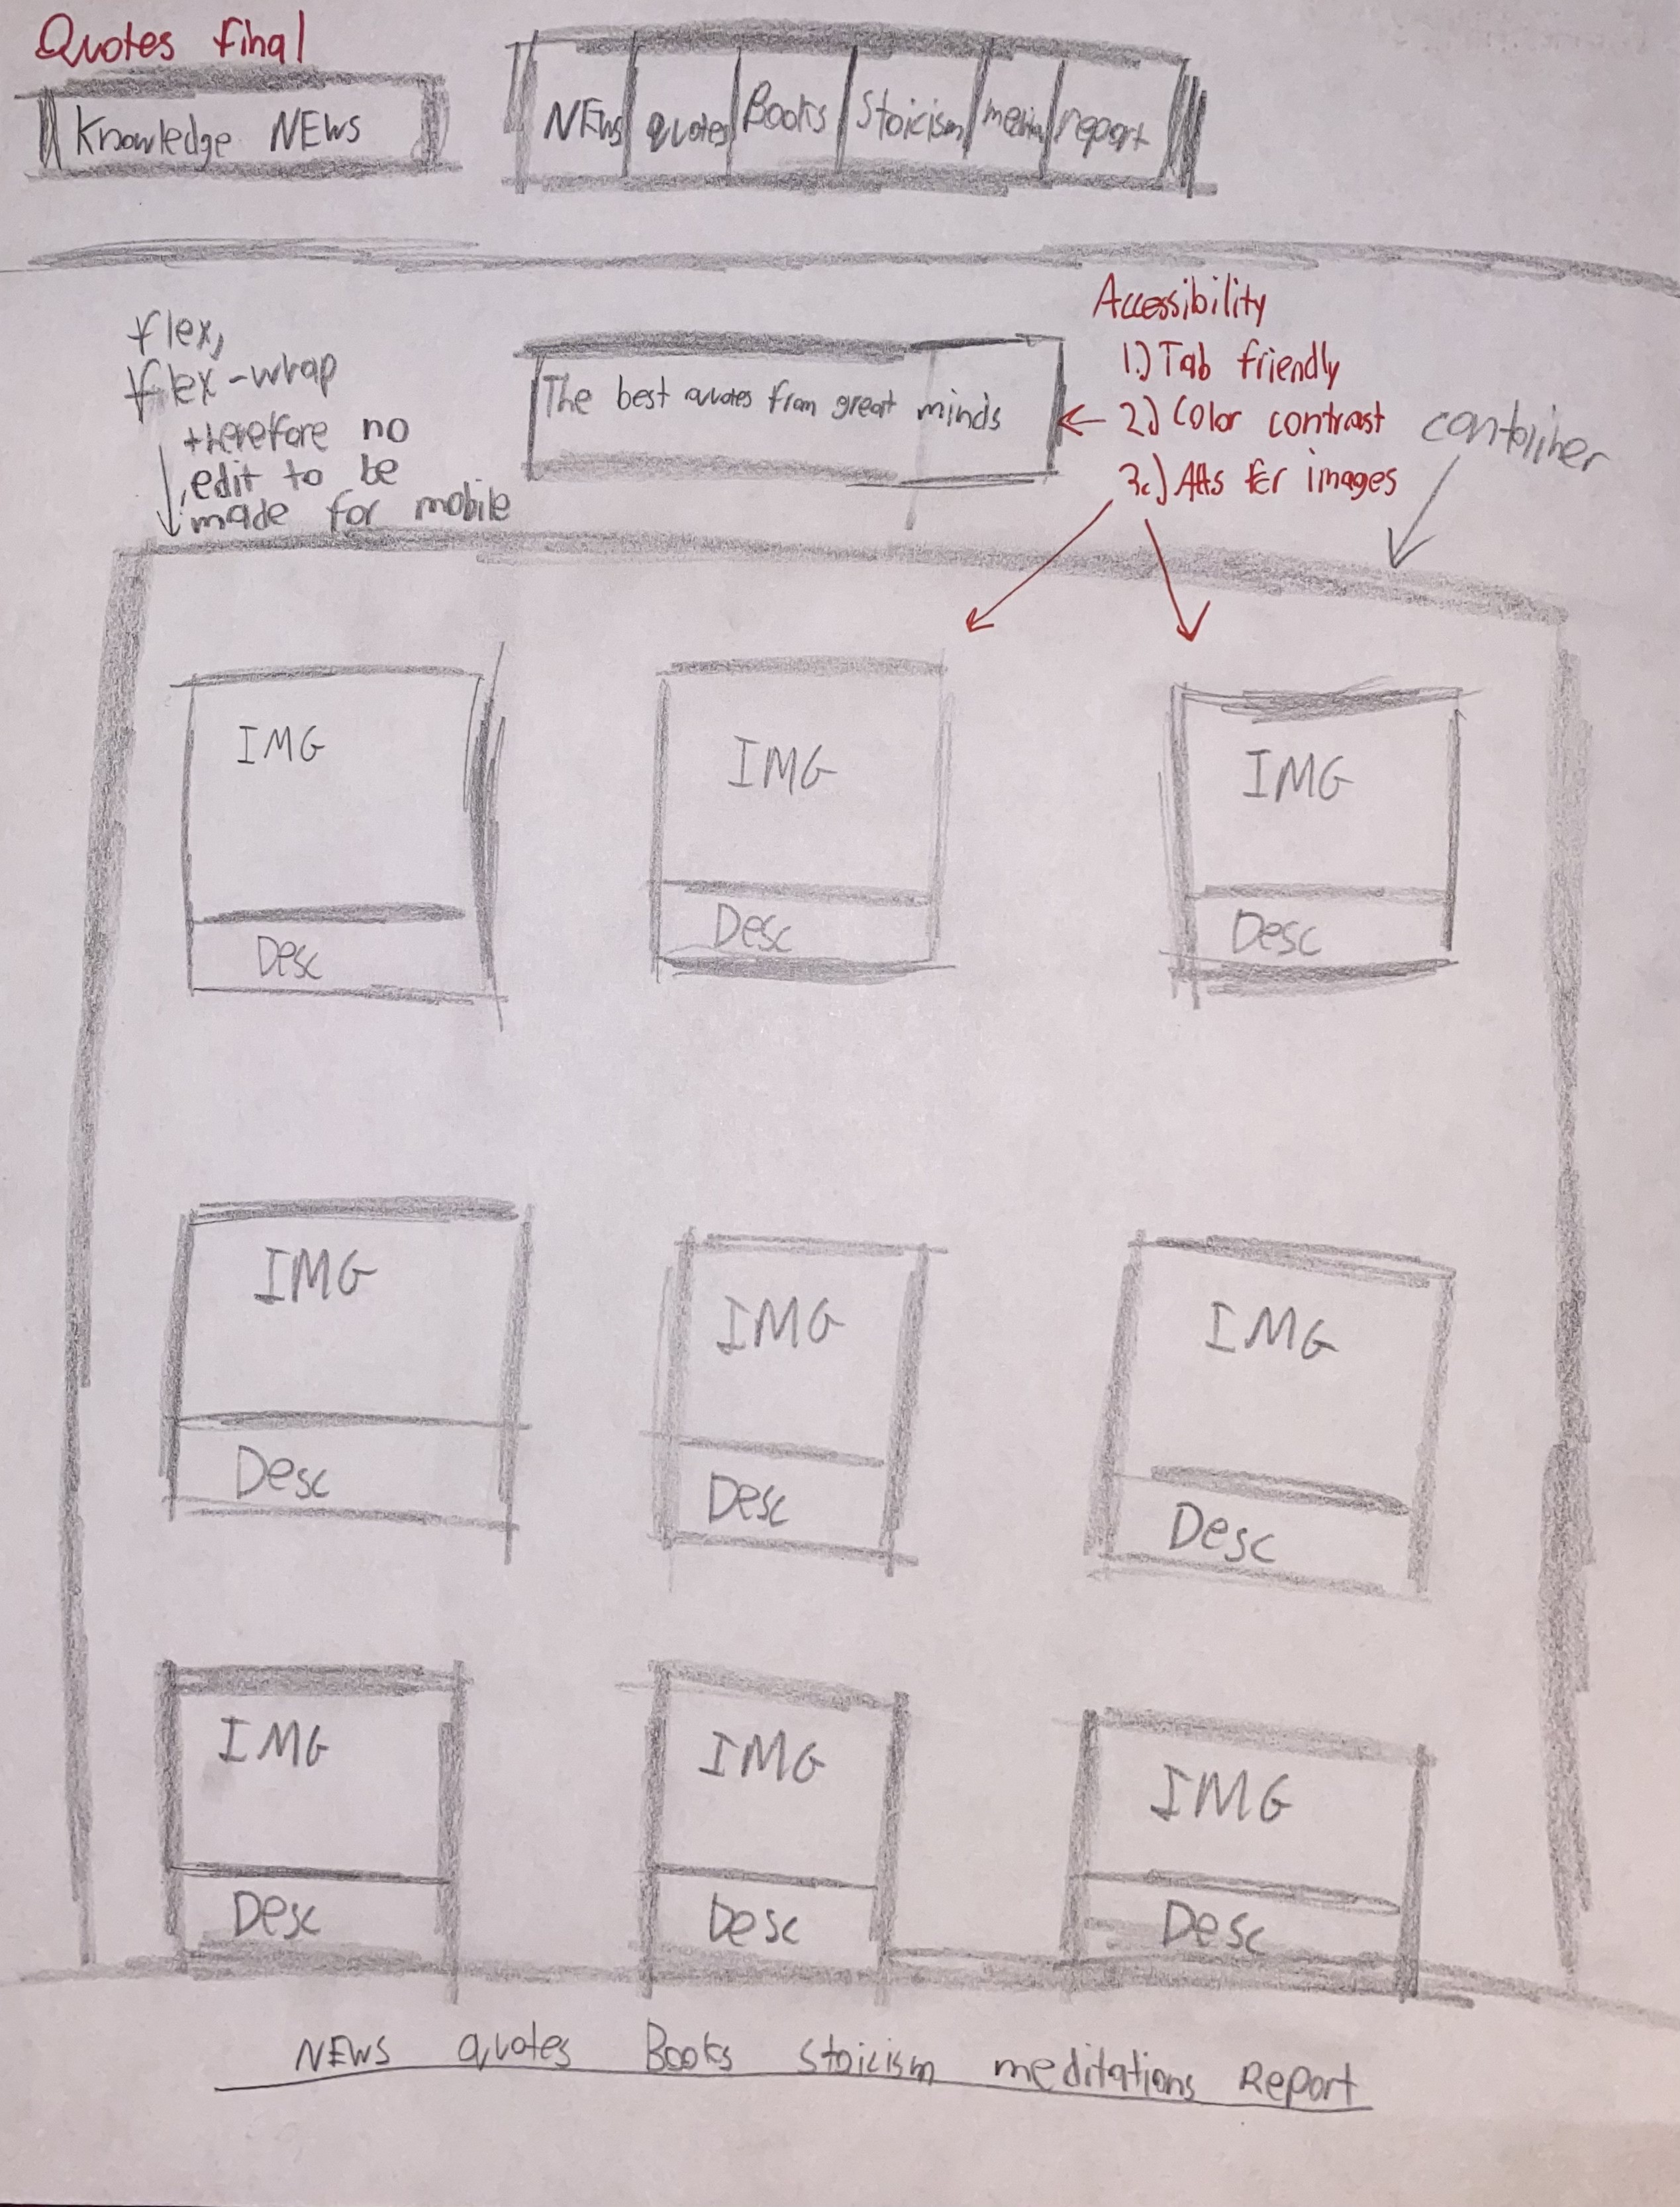 Quotes final
Knowledge NEWS
NEWS quotes Books Stoicism media report
flex,
flex-wrap
therefore no
edit to be
made for mobile
The best quotes from great minds
Accessibility
1.) Tab friendly
2.) Color contrast
3.) Alts for images
container
IMG IMG IMG
Desc Desc Desc
IMG IMG IMG
Desc Desc Desc
IMG IMG IMG
Desc Desc Desc
NEWS quotes Books Stoicism meditations Report